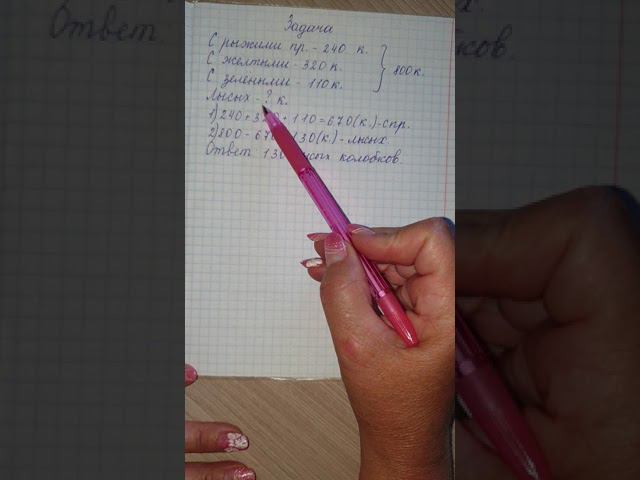 Задача
С рыжими пр. - 240 к.
С желтыми - 320 к.
С зелеными - 110 к.
800 к.
Лысых - ? к.
1) 240 + 320 + 110 = 670 (к.) - с пр.
2) 800 - 670 130 (к.) - лысых.
Ответ 130 колобков.